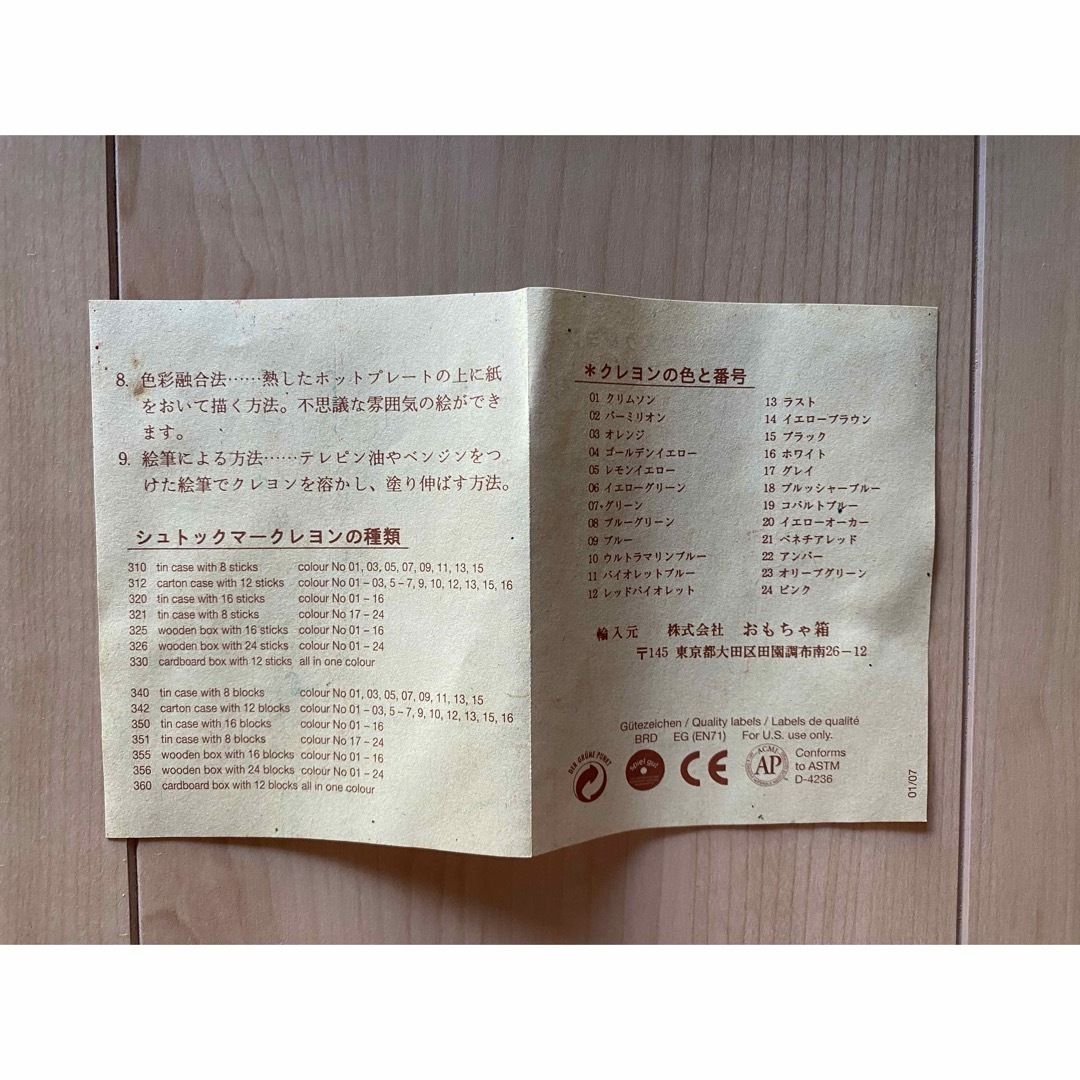 8. 色彩融合法……熱したホットプレートの上に紙
をおいて描く方法。不思議な雰囲気の絵ができ
ます。
9. 絵筆による方法……テレピン油やベンジンをつ
けた絵筆でクレヨンを溶かし、塗り伸ばす方法。
シュトックマークレヨンの種類
310 tin case with 8 sticks colour No 01, 03, 05, 07, 09, 11, 13, 15
312 carton case with 12 sticks colour No 01 – 03, 5 – 7, 9, 10, 12, 13, 15, 16
320 tin case with 16 sticks colour No 01 – 16
321 tin case with 8 sticks colour No 17 – 24
325 wooden box with 16 sticks colour No 01 – 16
326 wooden box with 24 sticks colour No 01 – 24
330 cardboard box with 12 sticks all in one colour
340 tin case with 8 blocks colour No 01, 03, 05, 07, 09, 11, 13, 15
342 carton case with 12 blocks colour No 01 – 03, 5 – 7, 9, 10, 12, 13, 15, 16
350 tin case with 16 blocks colour No 01 – 16
351 tin case with 8 blocks colour No 17 – 24
355 wooden box with 16 blocks colour No 01 – 16
356 wooden box with 24 blocks colour No 01 – 24
360 cardboard box with 12 blocks all in one colour
＊クレヨンの色と番号
01 クリムソン
02 バーミリオン
03 オレンジ
04 ゴールデンイエロー
05 レモンイエロー
06 イエローグリーン
07 グリーン
08 ブルーグリーン
09 ブルー
10 ウルトラマリンブルー
11 バイオレットブルー
12 レッドバイオレット
13 ラスト
14 イエローブラウン
15 ブラック
16 ホワイト
17 グレイ
18 プルッシャーブルー
19 コバルトブルー
20 イエローオーカー
21 ベネチアレッド
22 アンバー
23 オリーブグリーン
24 ピンク
輸入元 株式会社 おもちゃ箱
〒145 東京都大田区田園調布南26－12
Gütezeichen / Quality labels / Labels de qualité
BRD EG (EN71) For U.S. use only.
DER GRÜNE PUNKT
spiel gut
CE
ACMI
AP
Conforms
to ASTM
D-4236
01/07